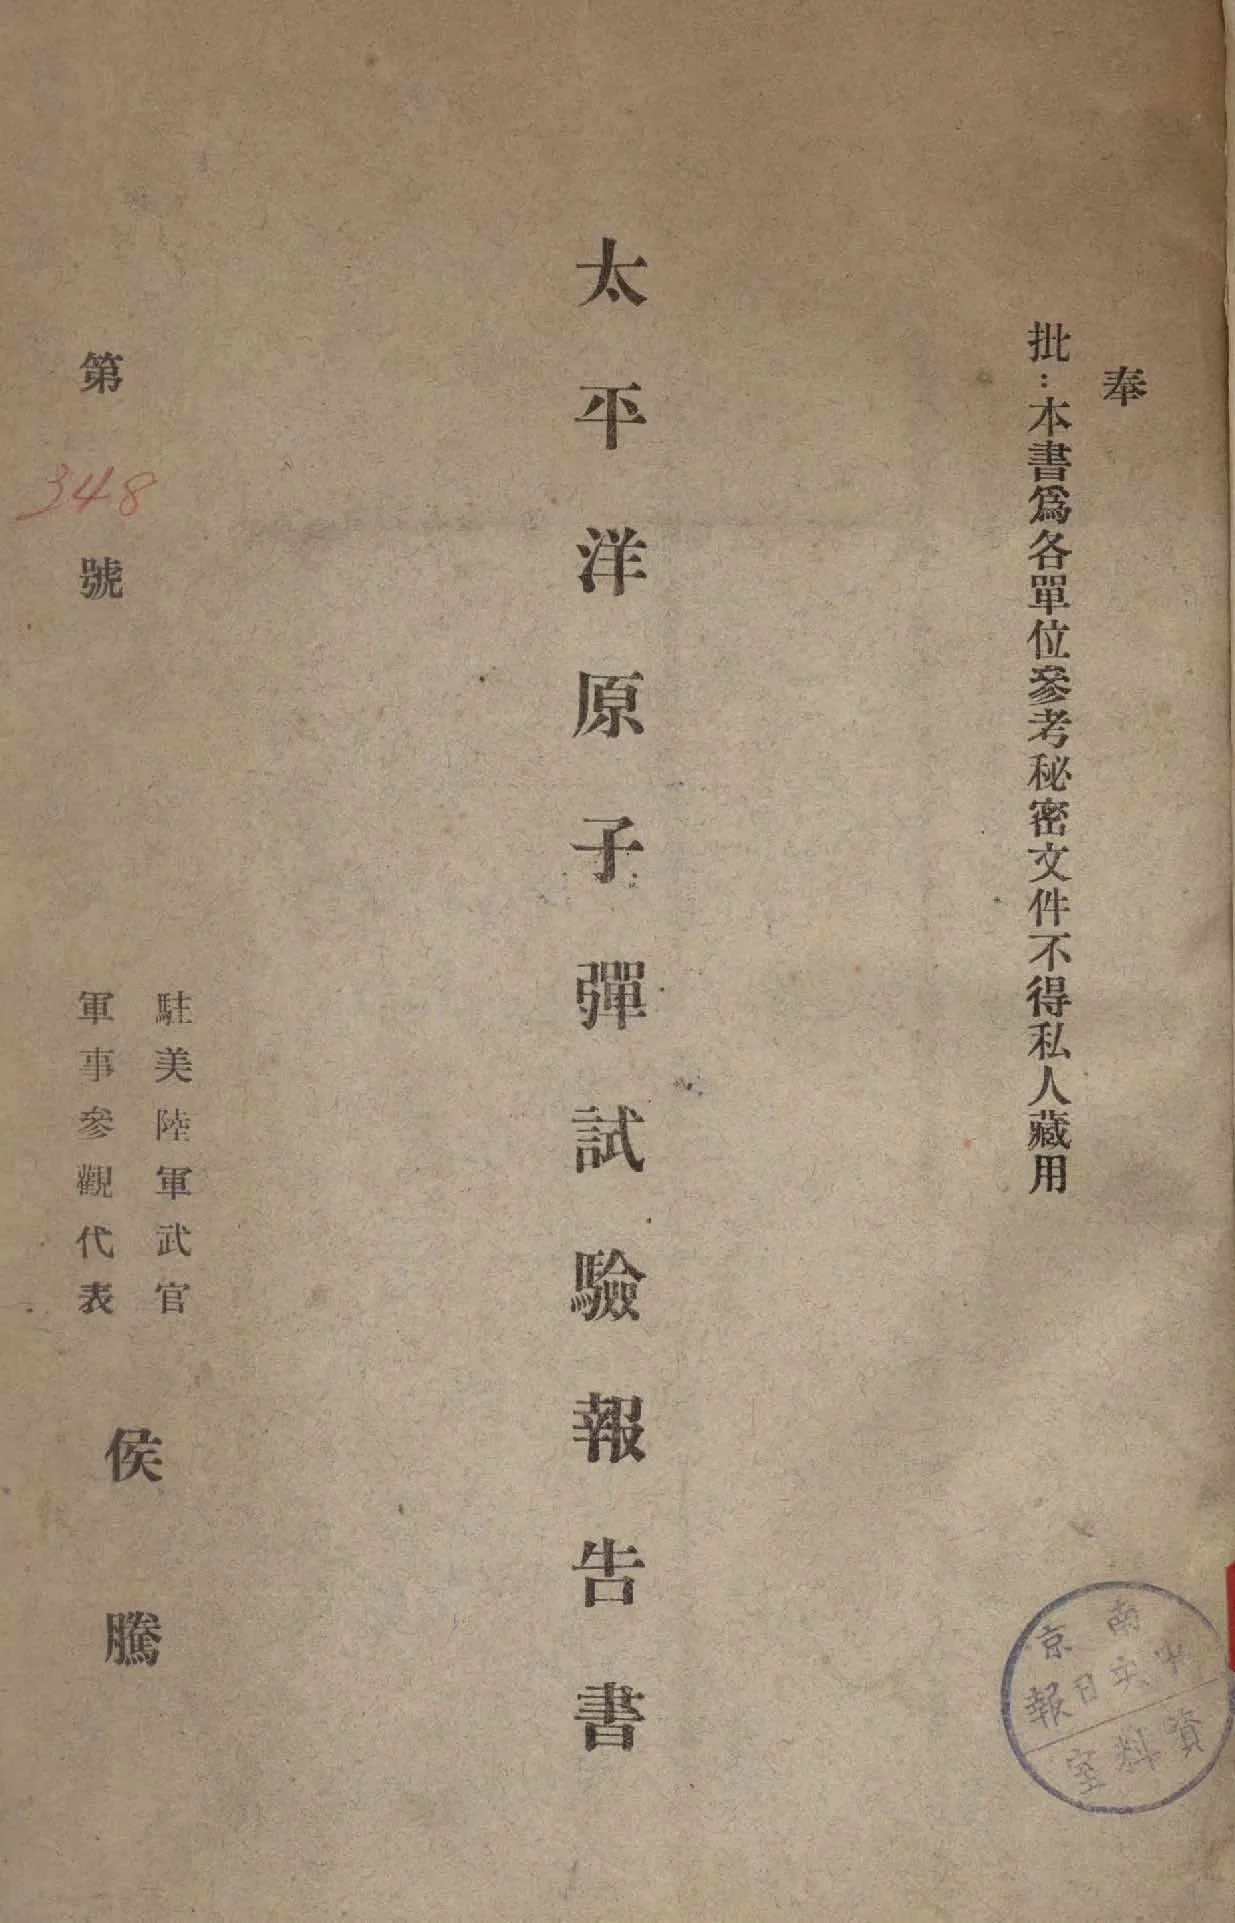 奉
批：本書爲各單位參考秘密文件不得私人藏用
太平洋原子彈試驗報告書
駐美陸軍武官
軍事參觀代表
侯騰
第348號
南京
中央日報
資料室